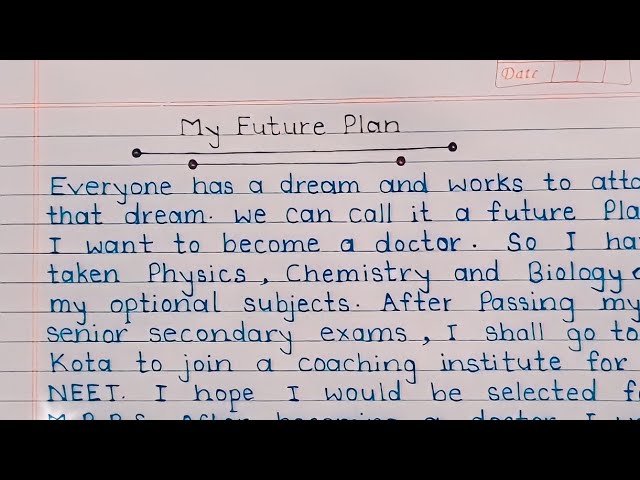 Date
My Future Plan
Everyone has a dream and works to
that dream. we can call it a future
I want to become a doctor. So I
taken Physics, Chemistry and Biology
my optional subjects. After Passing my
senior secondary exams, I shall go to
Kota to join a coaching institute for
NEET. I hope I would be selected